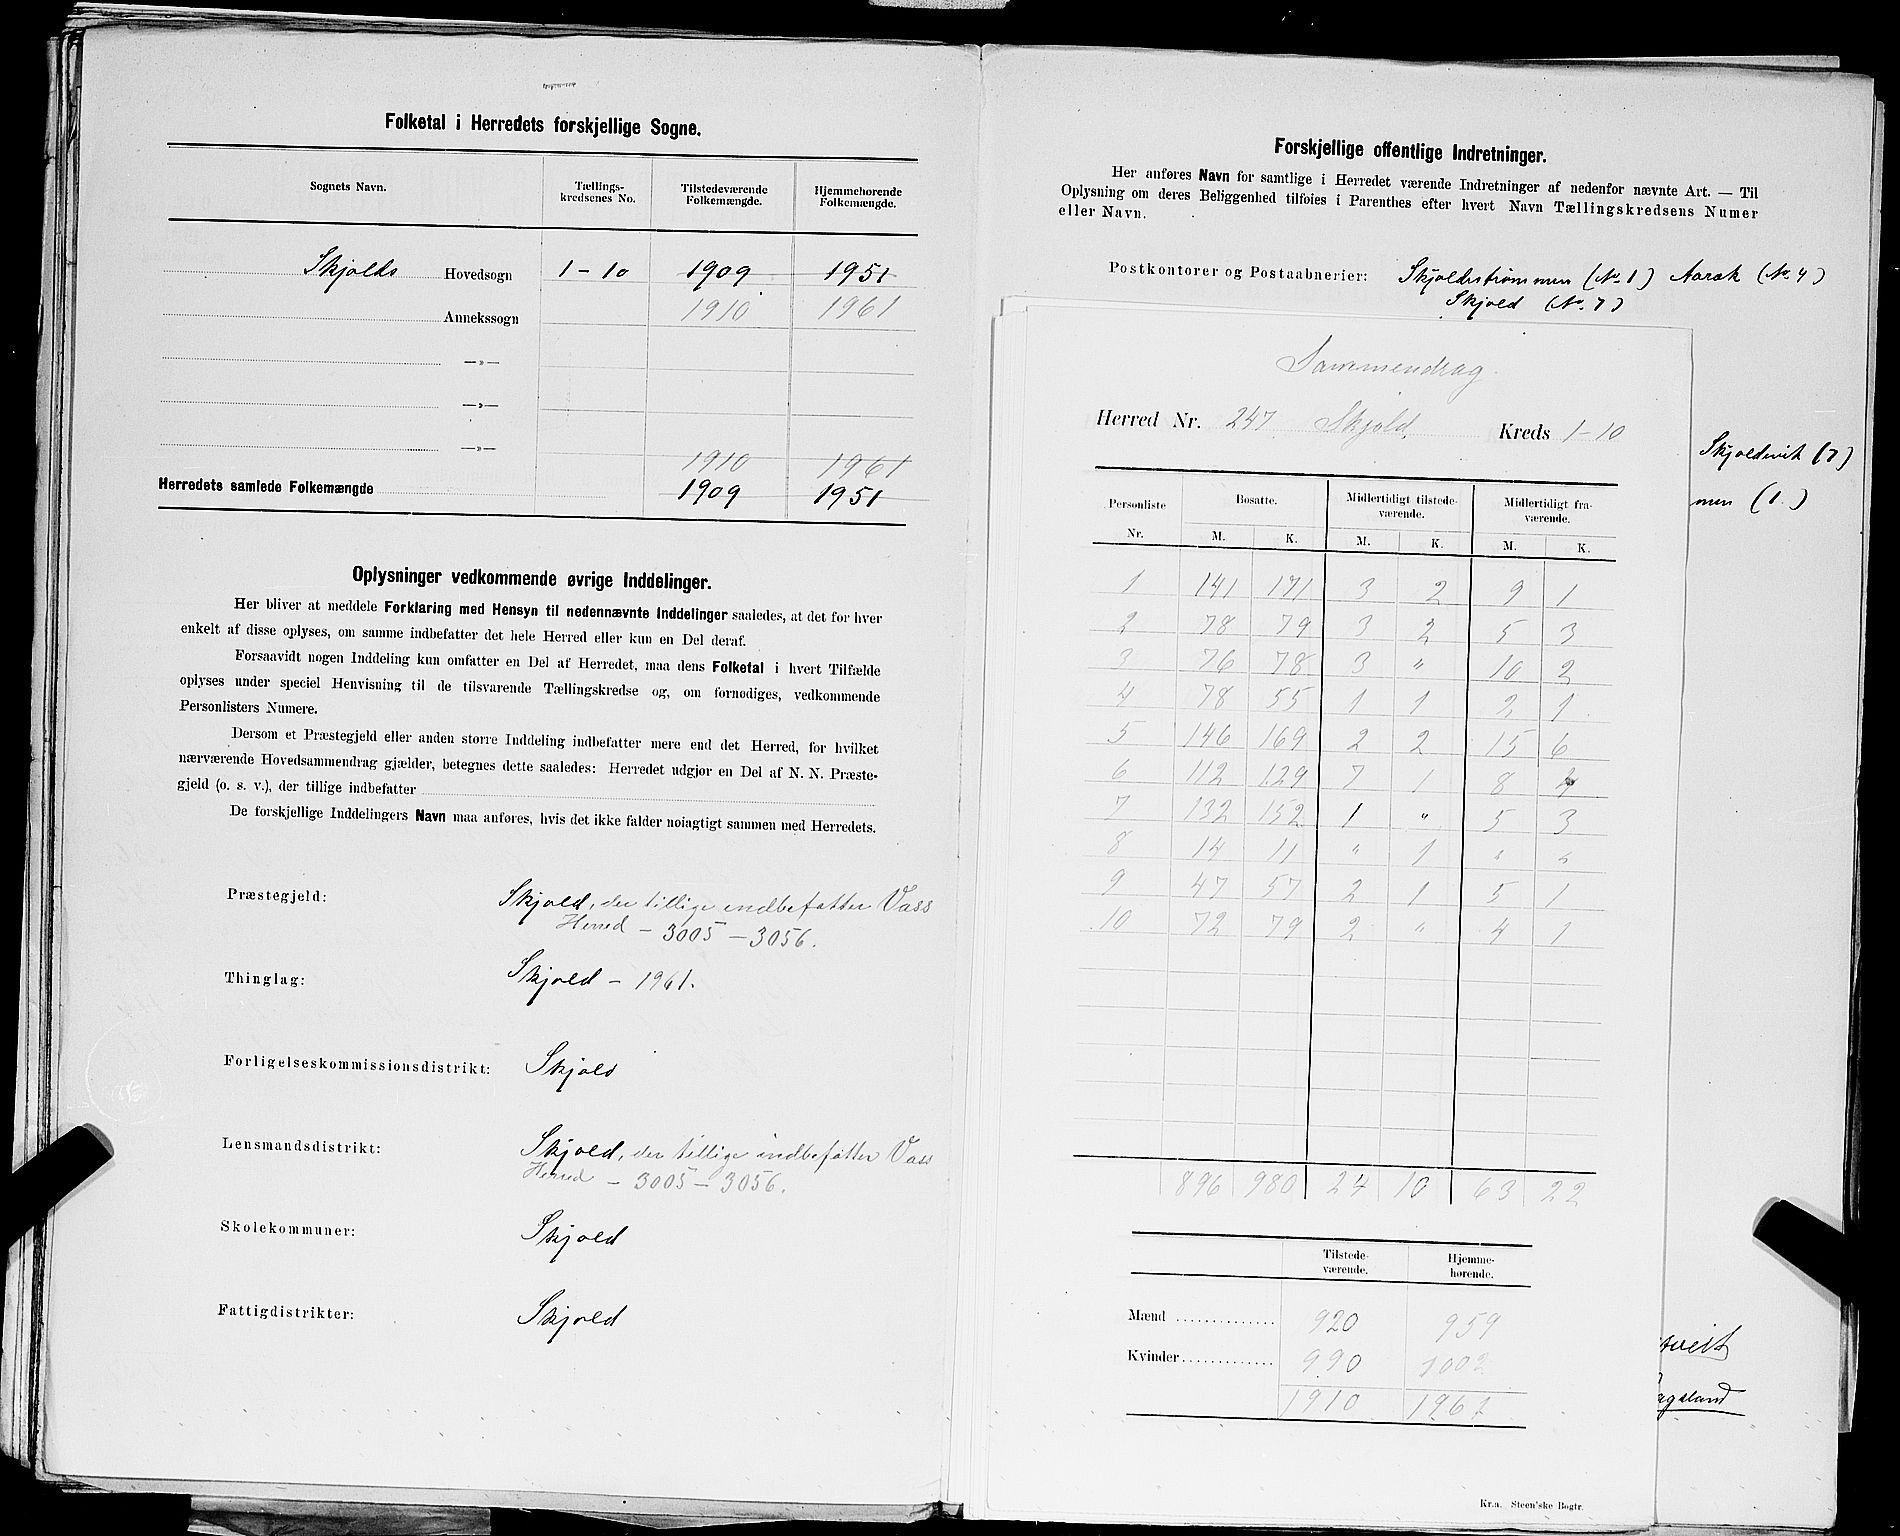 Folketal i Herredets forskjellige Sogne.
Sognets Navn. Tællings-kredsenes No. Tilstedeværende Folkemængde. Hjemmehørende Folkemængde.
Skjolds Hovedsogn 1-10 1909 1951
Annekssogn 1910 1961
—»—
—»—
—»—
1910 1961
Herredets samlede Folkemængde 1909 1951
Oplysninger vedkommende øvrige Inddelinger.
Her bliver at meddele Forklaring med Hensyn til nedennævnte Inddelinger saaledes, at det for hver
enkelt af disse oplyses, om samme indbefatter det hele Herred eller kun en Del deraf.
Forsaavidt nogen Inddeling kun omfatter en Del af Herredet, maa dens Folketal i hvert Tilfælde
oplyses under speciel Henvisning til de tilsvarende Tællingskredse og, om fornødiges, vedkommende
Personlisters Numere.
Dersom et Præstegjeld eller anden større Inddeling indbefatter mere end det Herred, for hvilket
nærværende Hovedsammendrag gjælder, betegnes dette saaledes: Herredet udgjor en Del af N. N. Præste-
gjeld (o. s. v.), der tillige indbefatter
De forskjellige Inddelingers Navn maa anføres, hvis det ikke falder noiagtigt sammen med Herredets.
Præstegjeld: Skjold, der tillige indbefatter Vass
Herred - 3005 - 3056.
Thinglag: Skjold - 1961.
Forligelseskommissionsdistrikt: Skjold
Lensmandsdistrikt: Skjold, der tillige indbefatter Vass
Herred - 3005 - 3056.
Skolekommuner: Skjold
Fattigdistrikter: Skjold
Forskjellige offentlige Indretninger.
Her anføres Navn for samtlige i Herredet værende Indretninger af nedenfor nævnte Art. — Til
Oplysning om deres Beliggenhed tilføies i Parenthes efter hvert Navn Tællingskredsens Numer
eller Navn.
Postkontorer og Postaabnerier: Skjoldestrømmen (No. 1) Aarak (No. 4)
Skjold (No. 7)
Sammendrag.
Herred Nr. 247 Skjold. Kreds 1-10
Skjoldevik (7)
men (1.)
Personliste Nr. Bosatte. Midlertidigt tilstede-værende. Midlertidigt fra-værende.
M. K. M. K. M. K.
1 141 171 3 2 9 1
2 78 79 3 2 5 3
3 76 78 3 " 10 2
4 78 55 1 1 2 1
5 146 169 2 2 15 6
6 112 129 7 1 8 4
7 132 152 1 " 5 3
8 14 11 " 1 " "
9 47 57 2 1 5 1
10 72 79 2 " 4 1
896 980 24 10 63 22
Tilstede-værende. Hjemme-hørende.
Mænd 920 959
Kvinder 990 1002
1910 1961
Kr.a. Steen'ske Bogtr.